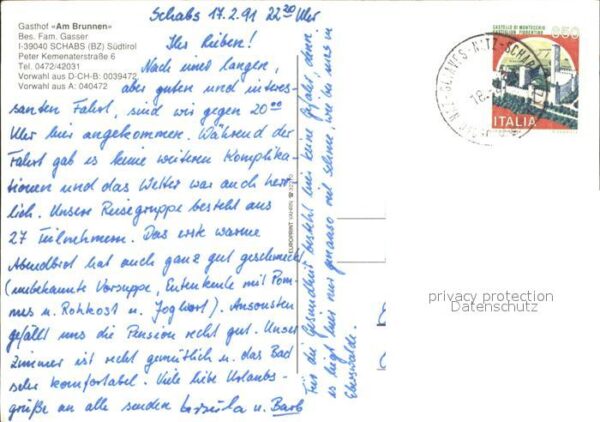 Gasthof «Am Brunnen»
Bes. Fam. Gasser
I-39040 SCHABS (BZ) Südtirol
Peter Kemenaterstraße 6
Tel. 0472/42031
Vorwahl aus D-CH-B: 0039472
Vorwahl aus A: 040472
Schabs 17.2.91 22²⁰ Uhr
Ihr Lieben!
Nach unserer langen,
aber guten und interes-
santen Fahrt, sind wir gegen 20⁰⁰
Uhr hier angekommen. Während der
Fahrt gab es keine weiteren Komplika-
tionen und das Wetter war auch herr-
lich. Unsere Reisegruppe besteht aus
27 Teilnehmern. Das erste warme
Abendbrot hat auch ganz gut geschmeckt
(unbekannte Vorsuppe, Entenkeule mit Pom-
mes u. Rohkost u. Joghurt). Ansonsten
gefällt uns die Pension recht gut. Unser
Zimmer ist recht gemütlich u. das Bad
sehr komfortabel. Viele liebe Urlaubs-
grüße an alle senden Ursula u. Barb
Für die Gesundheit besteht hier keine Gefahr, denn
es liegt hier nur genauso viel Schnee, wie bei uns in
Eberswalde.
EUROPRINT
CASTELLO DI MONTECCHIO
CASTIGLION FIORENTINO
650
ITALIA
NAZ-SCIAVES - NATZ-SCHABS
18.
privacy protection
Datenschutz